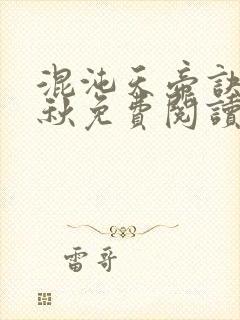 混沌天帝訣
秋免費閱讀
雷哥